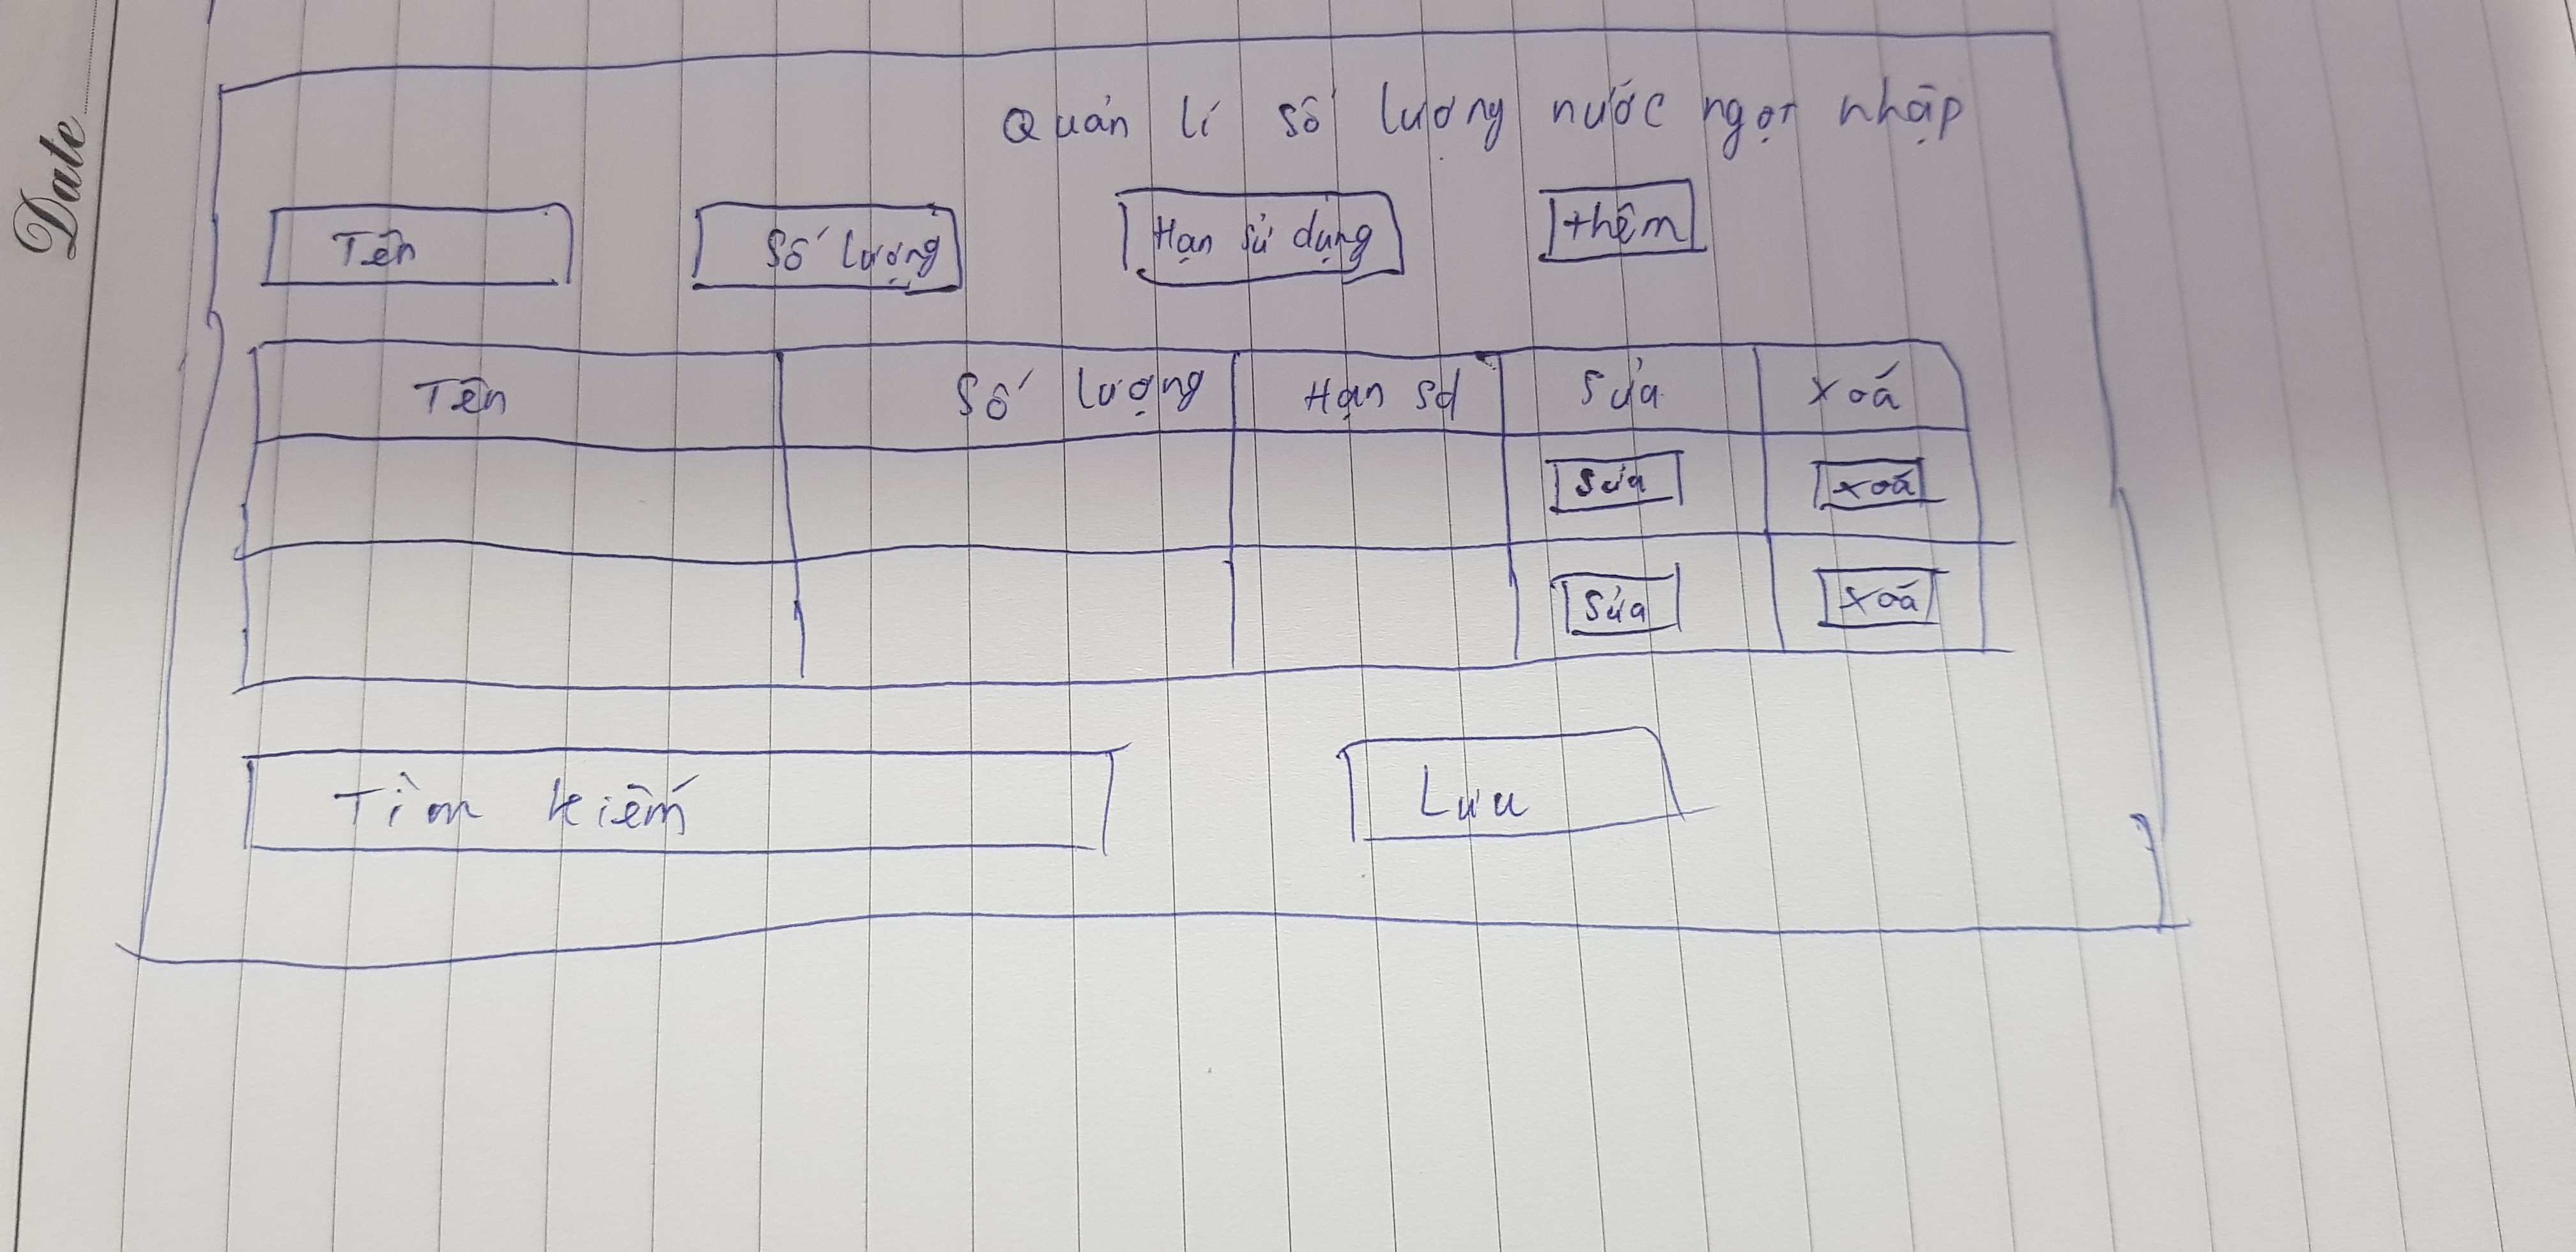 Date
Quản lí số lượng nước ngọt nhập
Tên Số lượng Hạn sử dụng +hêm
Tên Số lượng Hạn sd Sửa Xoá
Sửa Xoá
Sửa Xoá
Tìm kiếm Lưu